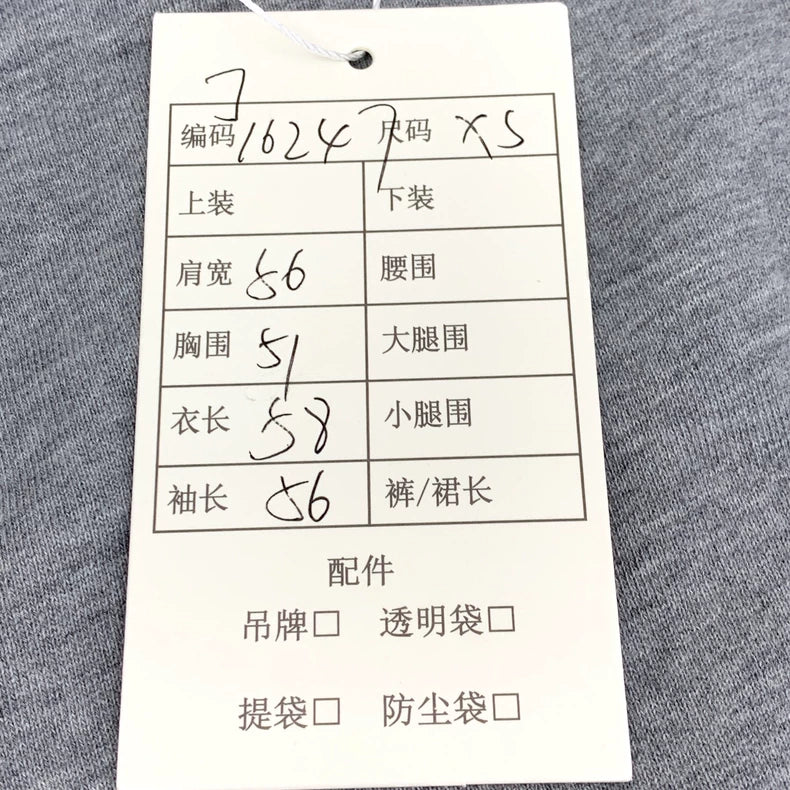 7
编码 16247 尺码 XS
上装 下装
肩宽 56 腰围
胸围 51 大腿围
衣长 58 小腿围
袖长 56 裤/裙长
配件
吊牌□ 透明袋□
提袋□ 防尘袋□